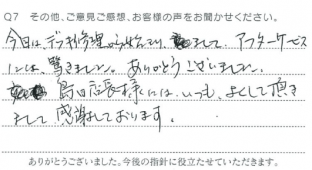 Q7 その他、ご意見ご感想、お客様の声をお聞かせください。
今日は、デッキ修理 まして、アフターサービス
には、驚きました。ありがとうございました。
島田店長様には、いつも、よくして頂き
まして 感謝しております。
ありがとうございました。今後の指針に役立たせていただきます。